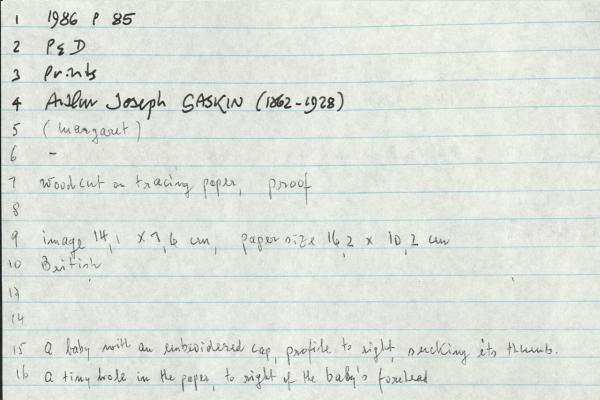 1 1986 P 85
2 P & D
3 Prints
4 Arthur Joseph GASKIN (1862-1928)
5 (Margaret)
6 -
7 woodcut on tracing paper, proof
8
9 image 14,1 x 9,6 cm, paper size 16,2 x 10,2 cm
10 British
13
14
15 a baby with an embroidered cap, profile to right, sucking its thumb.
16 a tiny hole in the paper, to right of the baby's forehead